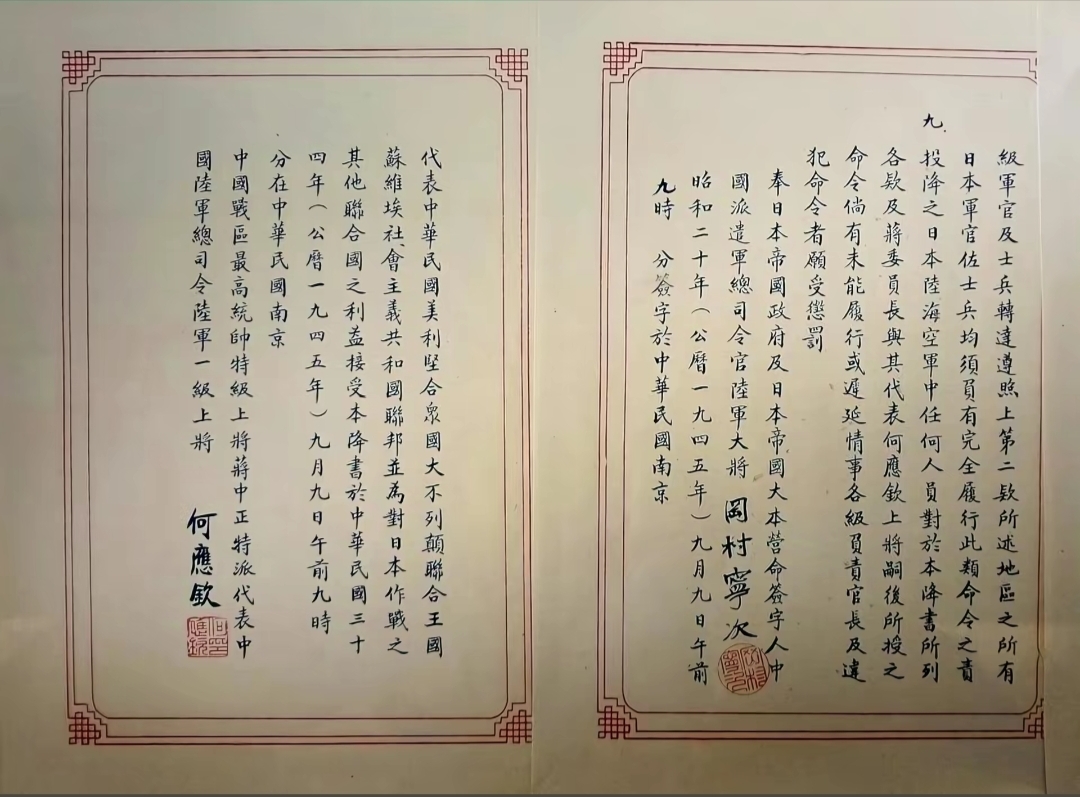 級軍官及士兵轉達遵照上第二欵所述地區之所有
日本軍官佐士兵均須負有完全履行此類命令之責
九、投降之日本陸海空軍中任何人員對於本降書所列
各欵及蔣委員長與其代表何應欽上將嗣後所授之
命令倘有未能履行或遲延情事各級負責官長及違
犯命令者願受懲罰
奉日本帝國政府及日本帝國大本營命簽字人中
國派遣軍總司令官陸軍大將 岡村寧次
昭和二十年(公曆一九四五年)九月九日午前
九時 分簽字於中華民國南京
代表中華民國美利堅合衆國大不列顛聯合王國
蘇維埃社會主義共和國聯邦並為對日本作戰之
其他聯合國之利益接受本降書於中華民國三十
四年(公曆一九四五年)九月九日午前九時
分在中華民國南京
中國戰區最高統帥特級上將蔣中正特派代表中
國陸軍總司令陸軍一級上將 何應欽